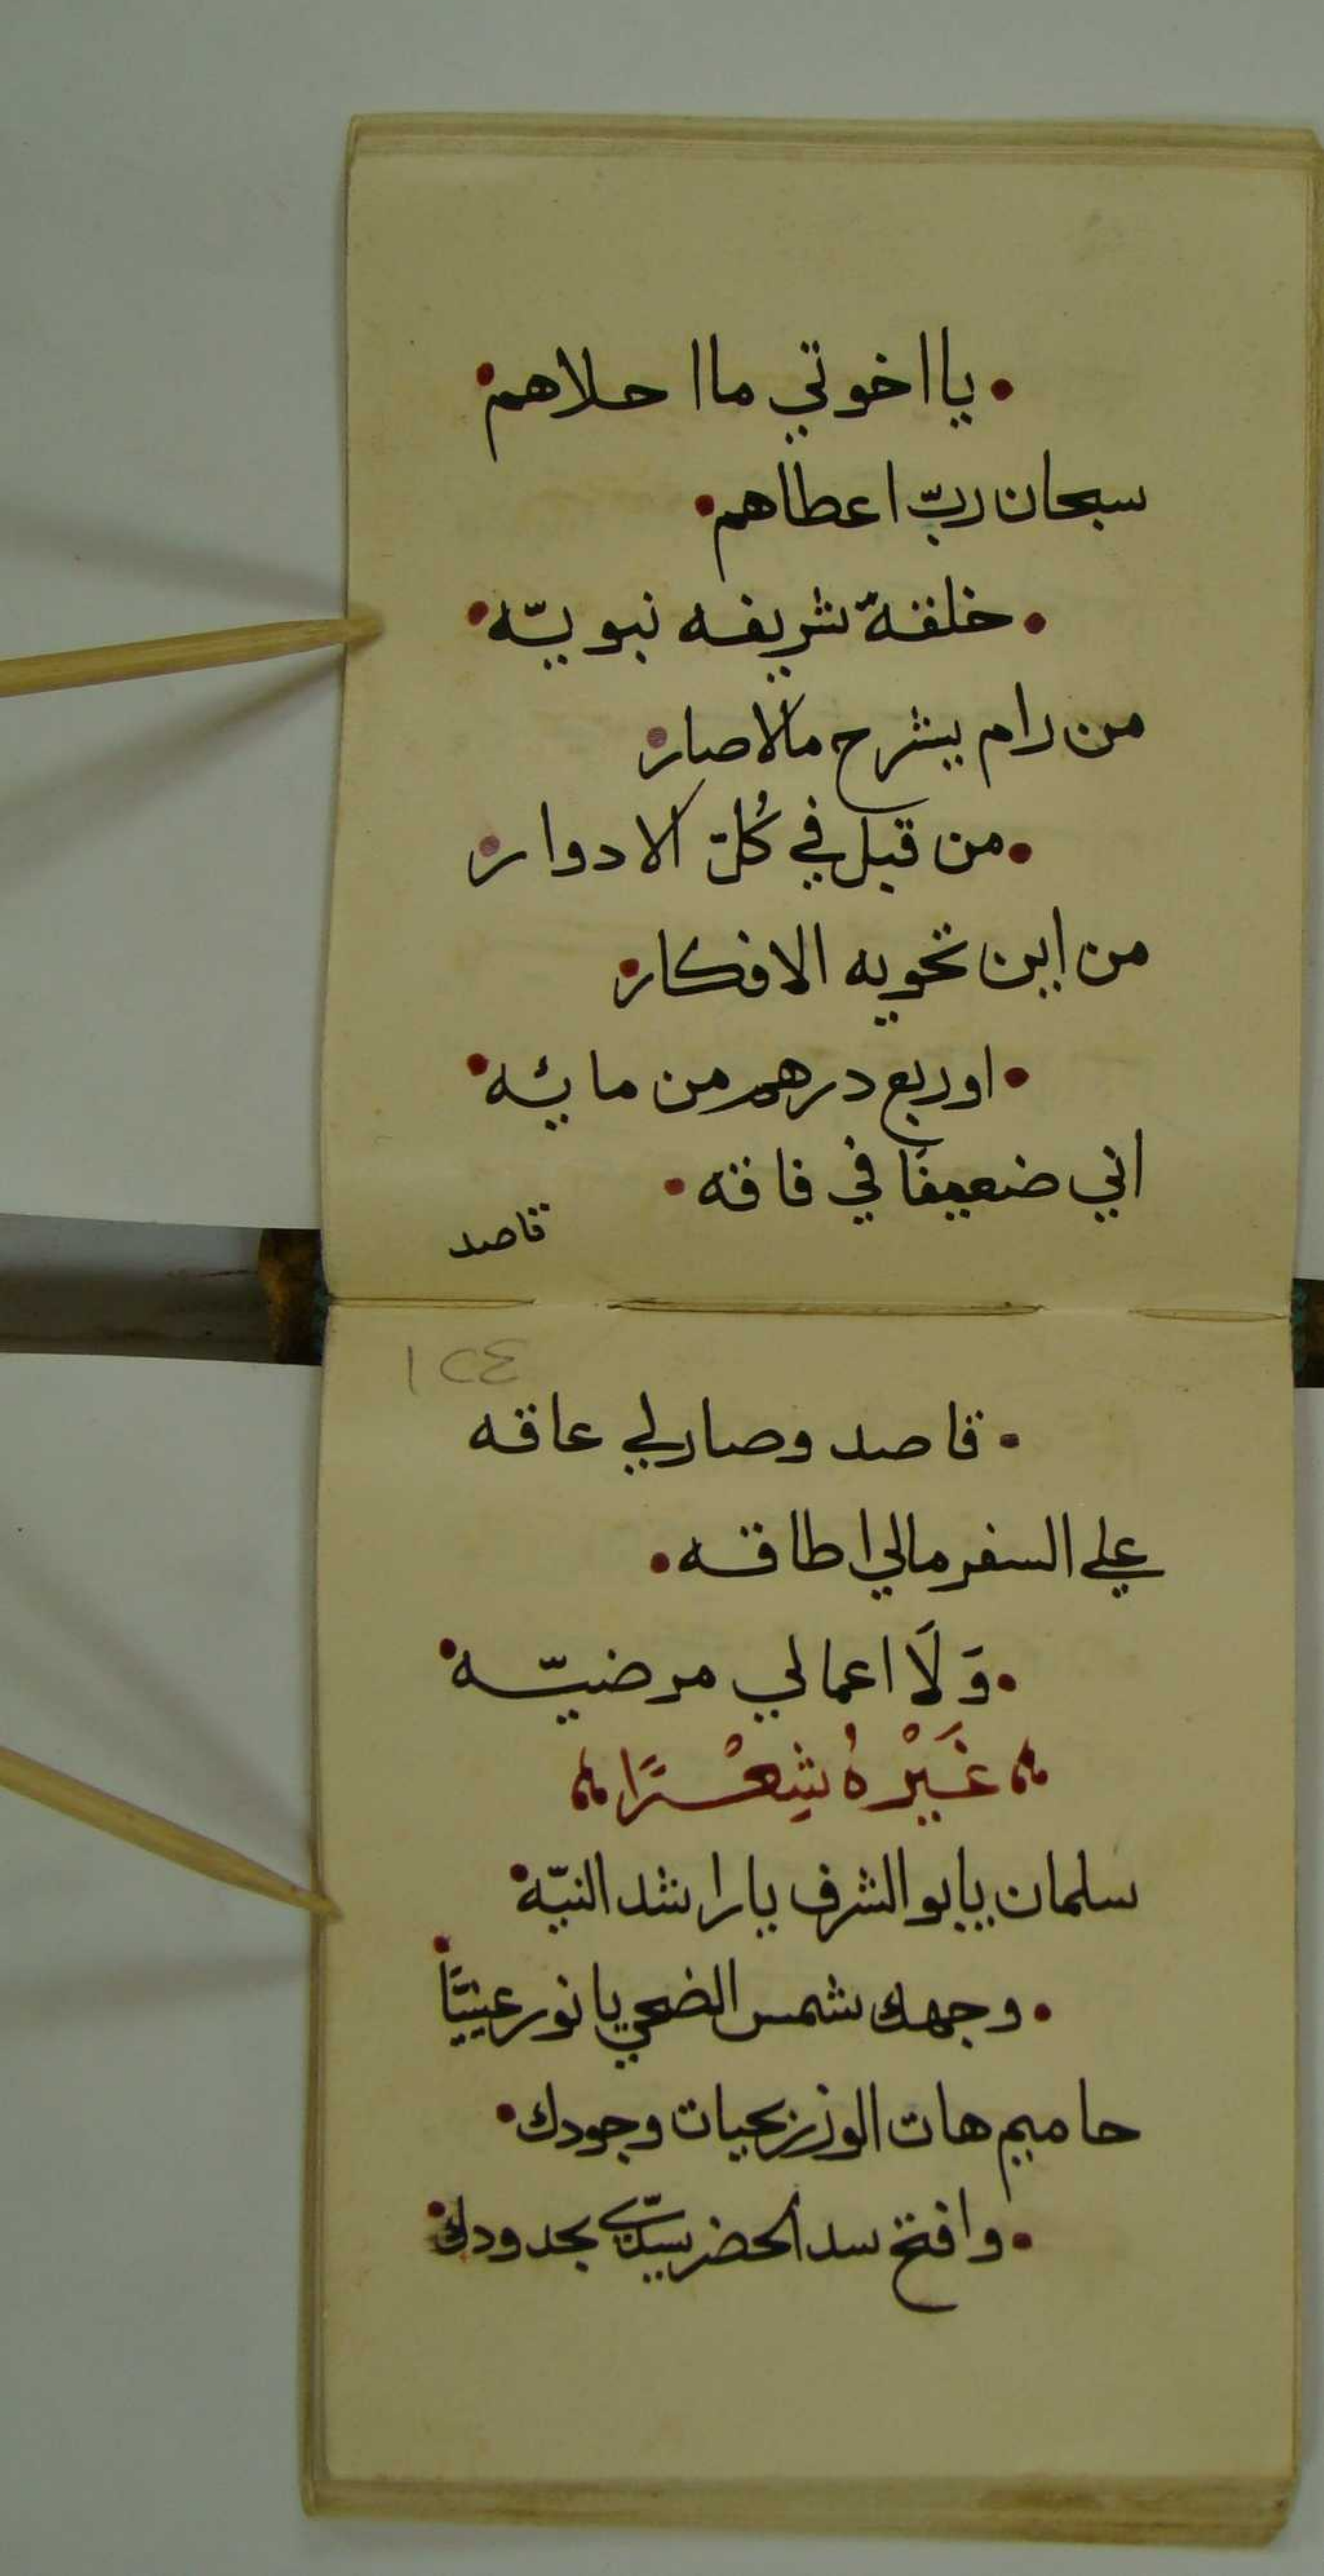 • يااخوتي ماا حلاهم •
سبحان ربّ اعطاهم •
• خلقةّ شريفه نبويّه •
من رام يشرح مالاصار •
• من قبل في كُلّ الادوار •
من اين تحويه الافكار •
• اوربع درهم من مايئه •
اني ضعيفًا في فاقه •
قاصد
١٢٤
• قاصد وصارلي عاقه
علي السفر مالي اطاقه •
• وَلَا اعمالي مرضيّه •
غَيْرهُ شِعْرًا
سلمان يابو الشرف يا راشد النيّه •
• وجهك شمس الضحي يا نور عينيّا •
حاميم هات الوزر بحيات وجودك •
• وافتح سد الحضر بحدودك •